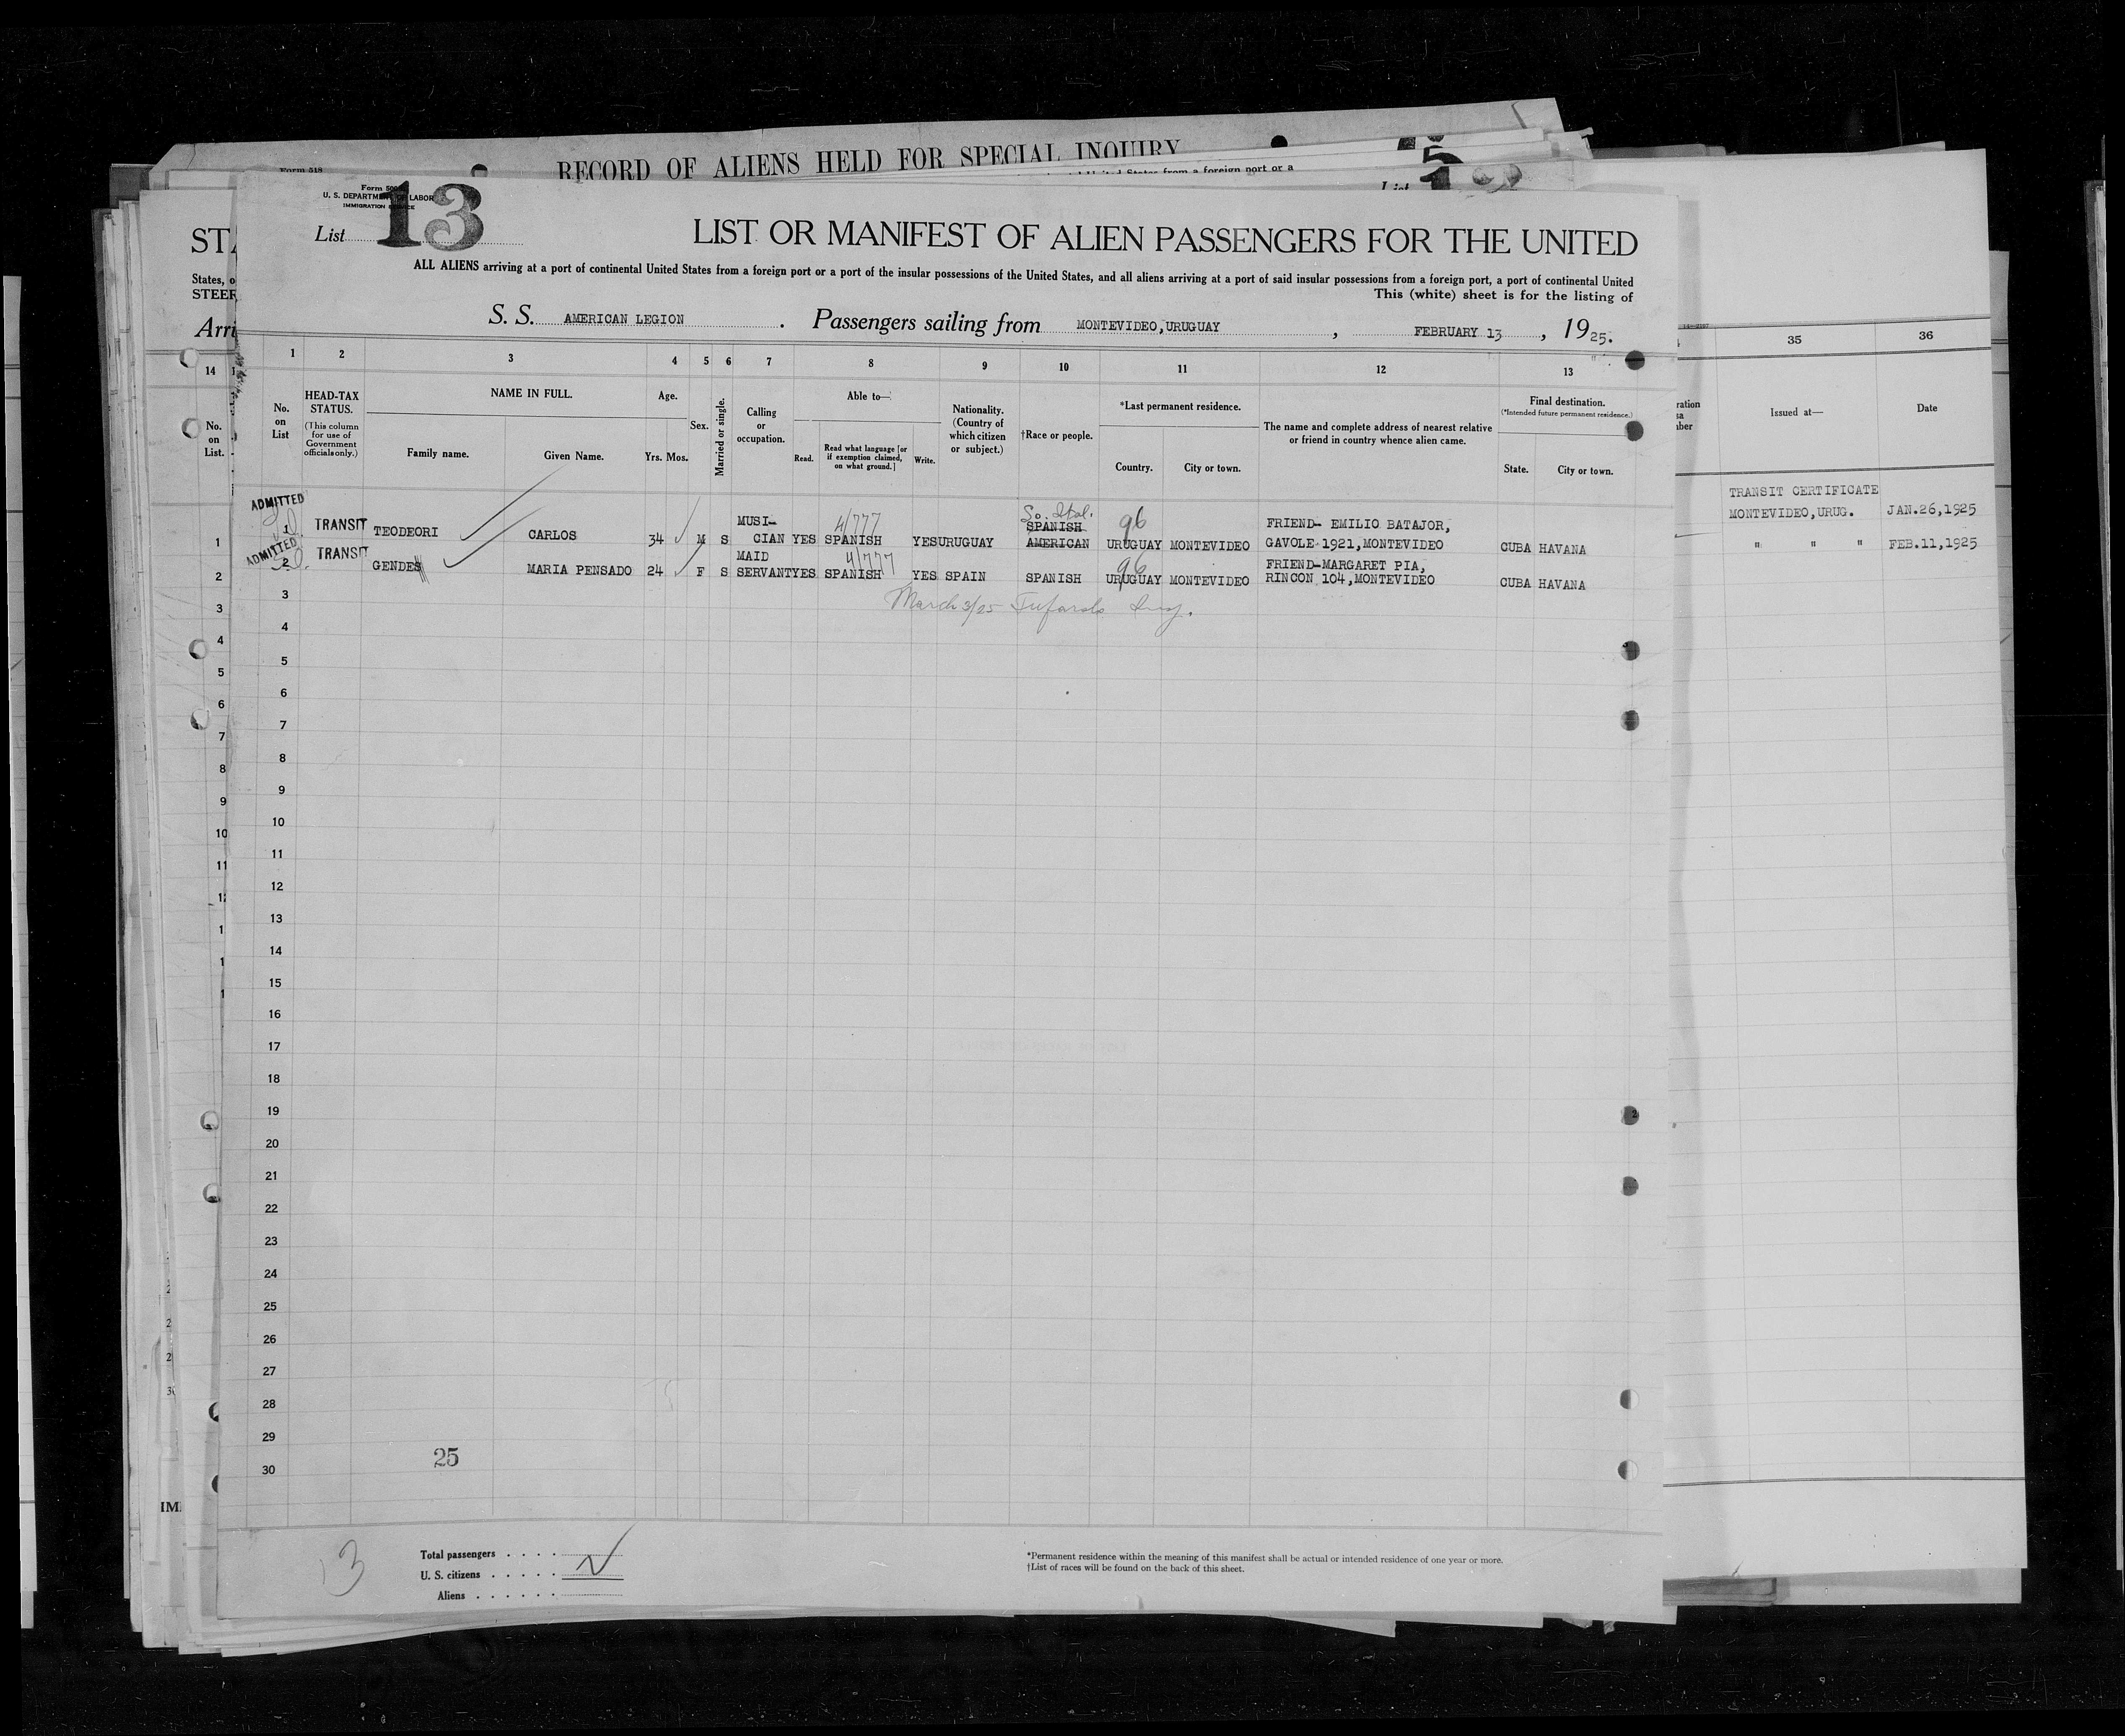 RECORD OF ALIENS HELD FOR SPECIAL INQUIRY
Form 518
from a foreign port or a
5
Form 500
U. S. DEPARTMENT OF LABOR
IMMIGRATION SERVICE
List 13
LIST OR MANIFEST OF ALIEN PASSENGERS FOR THE UNITED
ALL ALIENS arriving at a port of continental United States from a foreign port or a port of the insular possessions of the United States, and all aliens arriving at a port of said insular possessions from a foreign port, a port of continental United
This (white) sheet is for the listing of
S. S. AMERICAN LEGION . Passengers sailing from MONTEVIDEO, URUGUAY , FEBRUARY 13 , 1925.
STA
States, o
STEER
Arri
14
No. on List.
1 2 3 4 5 6 7 8 9 10 11 12 13
No. on List
HEAD-TAX STATUS.
(This column for use of Government officials only.)
NAME IN FULL.
Family name.
Given Name.
Age.
Yrs. Mos.
Sex.
Married or single.
Calling or occupation.
Able to—
Read.
Read what language [or if exemption claimed, on what ground.]
Write.
Nationality. (Country of which citizen or subject.)
†Race or people.
*Last permanent residence.
Country.
City or town.
The name and complete address of nearest relative or friend in country whence alien came.
Final destination.
(*Intended future permanent residence.)
State.
City or town.
35 36
Issued at—
Date
ADMITTED
1 TRANSIT TEODEORI CARLOS 34 M S MUSI-CIAN YES SPANISH 4/777 YES URUGUAY So. Ital. SPANISH AMERICAN 96 URUGUAY MONTEVIDEO FRIEND- EMILIO BATAJOR, GAVOLE 1921, MONTEVIDEO CUBA HAVANA
TRANSIT CERTIFICATE
MONTEVIDEO, URUG. JAN.26,1925
ADMITTED
2 TRANSIT GENDES MARIA PENSADO 24 F S MAID SERVANT YES SPANISH 4/777 YES SPAIN SPANISH 96 URUGUAY MONTEVIDEO FRIEND-MARGARET PIA, RINCON 104, MONTEVIDEO CUBA HAVANA
" " " FEB.11,1925
March 3/25
3
4
5
6
7
8
9
10
11
12
13
14
15
16
17
18
19
20
21
22
23
24
25
26
27
28
29
30
25
13
Total passengers . . . .
U. S. citizens . . . . .
Aliens . . . . . .
*Permanent residence within the meaning of this manifest shall be actual or intended residence of one year or more.
†List of races will be found on the back of this sheet.